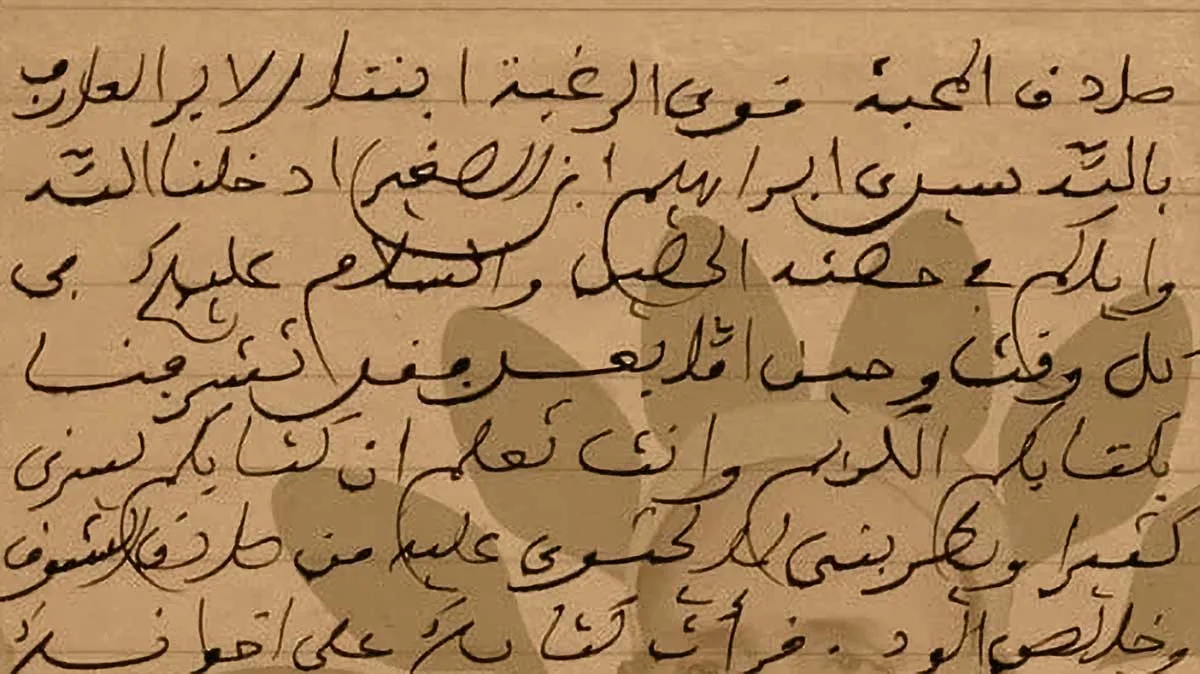 صادق المحبة قوي الرغبة ابننا الابر العارف
بالله سيدي ابراهيم ابن الصغير ادخلنا الله
واياكم في حصنه الحصين والسلام عليكم في
كل وقت وحين اما بعد فقد تشرفنا
بكتابكم الكريم وانت تعلم ان كتابكم يسرني
كثيرا ويطربني لما يحتوي عليه من صادق الشوق
وخالص الود . قرأت كتابك على اخوانك